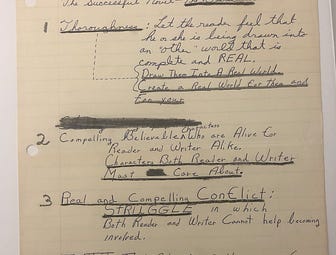 The Successful Novel-
1 Thoroughness: Let the reader feel that
he or she is being drawn into
an "other" world that is
complete and REAL.
Draw Them Into A Real World.
Create a Real World For them and
For your
Characters
2 Compelling Believable Who are Alive For
Reader and Writer Alike.
Characters Both Reader and Writer
Must Care About.
3 Real and Compelling Conflict:
STRUGGLE in which
Both Reader and Writer Cannot help becoming
involved.